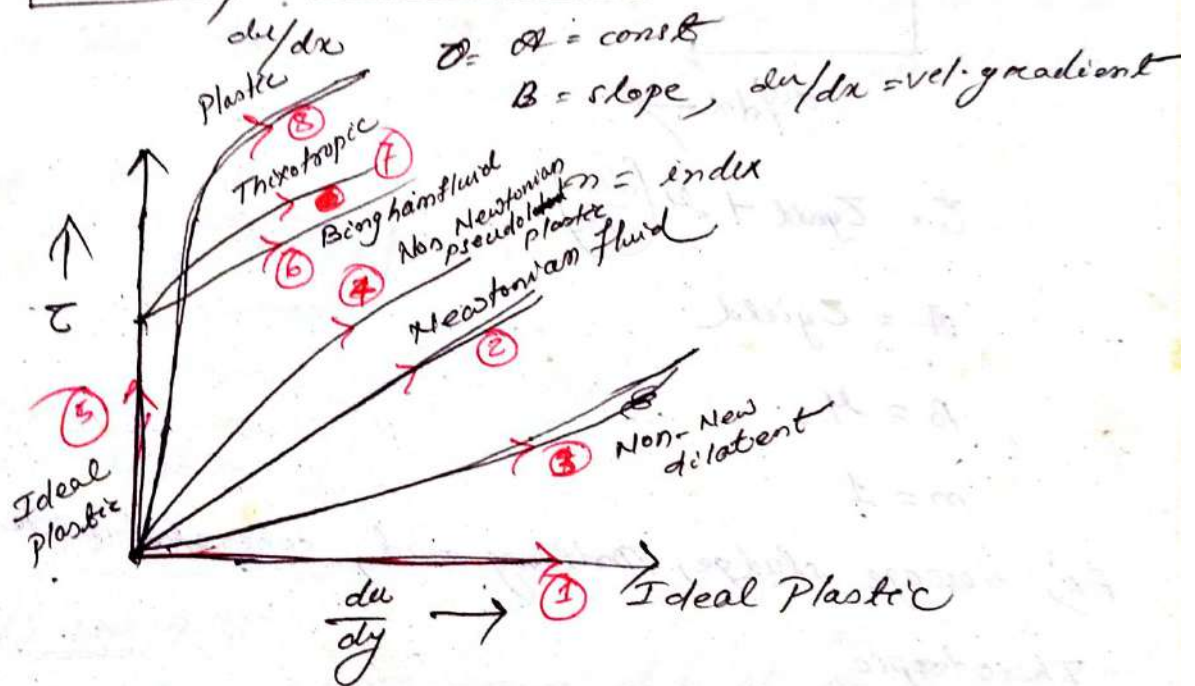 du/dx
A = const
B = slope, du/dx = vel. gradient
n = index
Plastic
⑧
Thixotropic
⑦
Bingham fluid
⑥
Non Newtonian
pseudo
plastic
④
Newtonian fluid
②
Non-New
dilatent
③
τ
⑤
Ideal
plastic
du/dy → ① Ideal Plastic